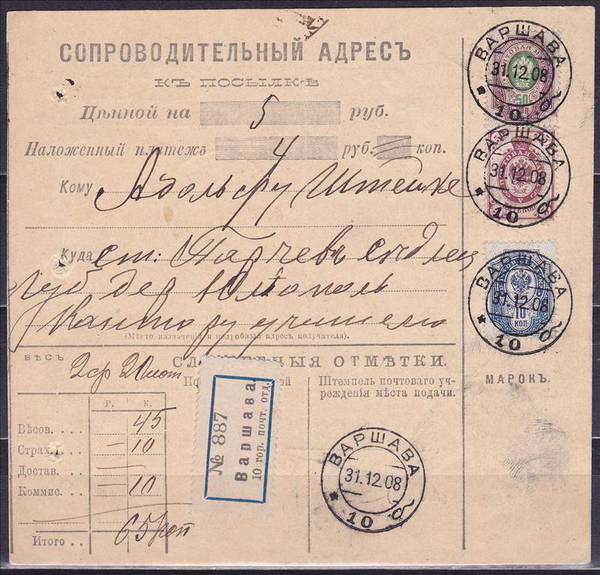 СОПРОВОДИТЕЛЬНЫЙ АДРЕСЪ
КЪ ПОСЫЛКѢ
Цѣнной на 5 руб.
Наложенный платежъ 4 руб. коп.
Кому Адольфу Штейке
Куда ст: Парчевъ Сѣдлец
губ дер Юліополь
Кантору учителю
(Мѣсто назначенія и подробный адресъ получателя).
ВѢСЪ
2ф 20 лот
СЛУЖЕБНЫЯ ОТМѢТКИ.
Штемпель почтоваго учрежденія мѣста подачи.
МАРОКЪ.
Р. К.
Вѣсов. 45
Страх. 10
Достав. —
Коммис. 10
Итого 65 коп
№ 887
Варшава.
10 гор. почт. отд.
ВАРШАВА
31.12.08
10
ВАРШАВА
31.12.08
10
ВАРШАВА
31.12.08
10
10
КОП
ВАРШАВА
31.12.08
10
50